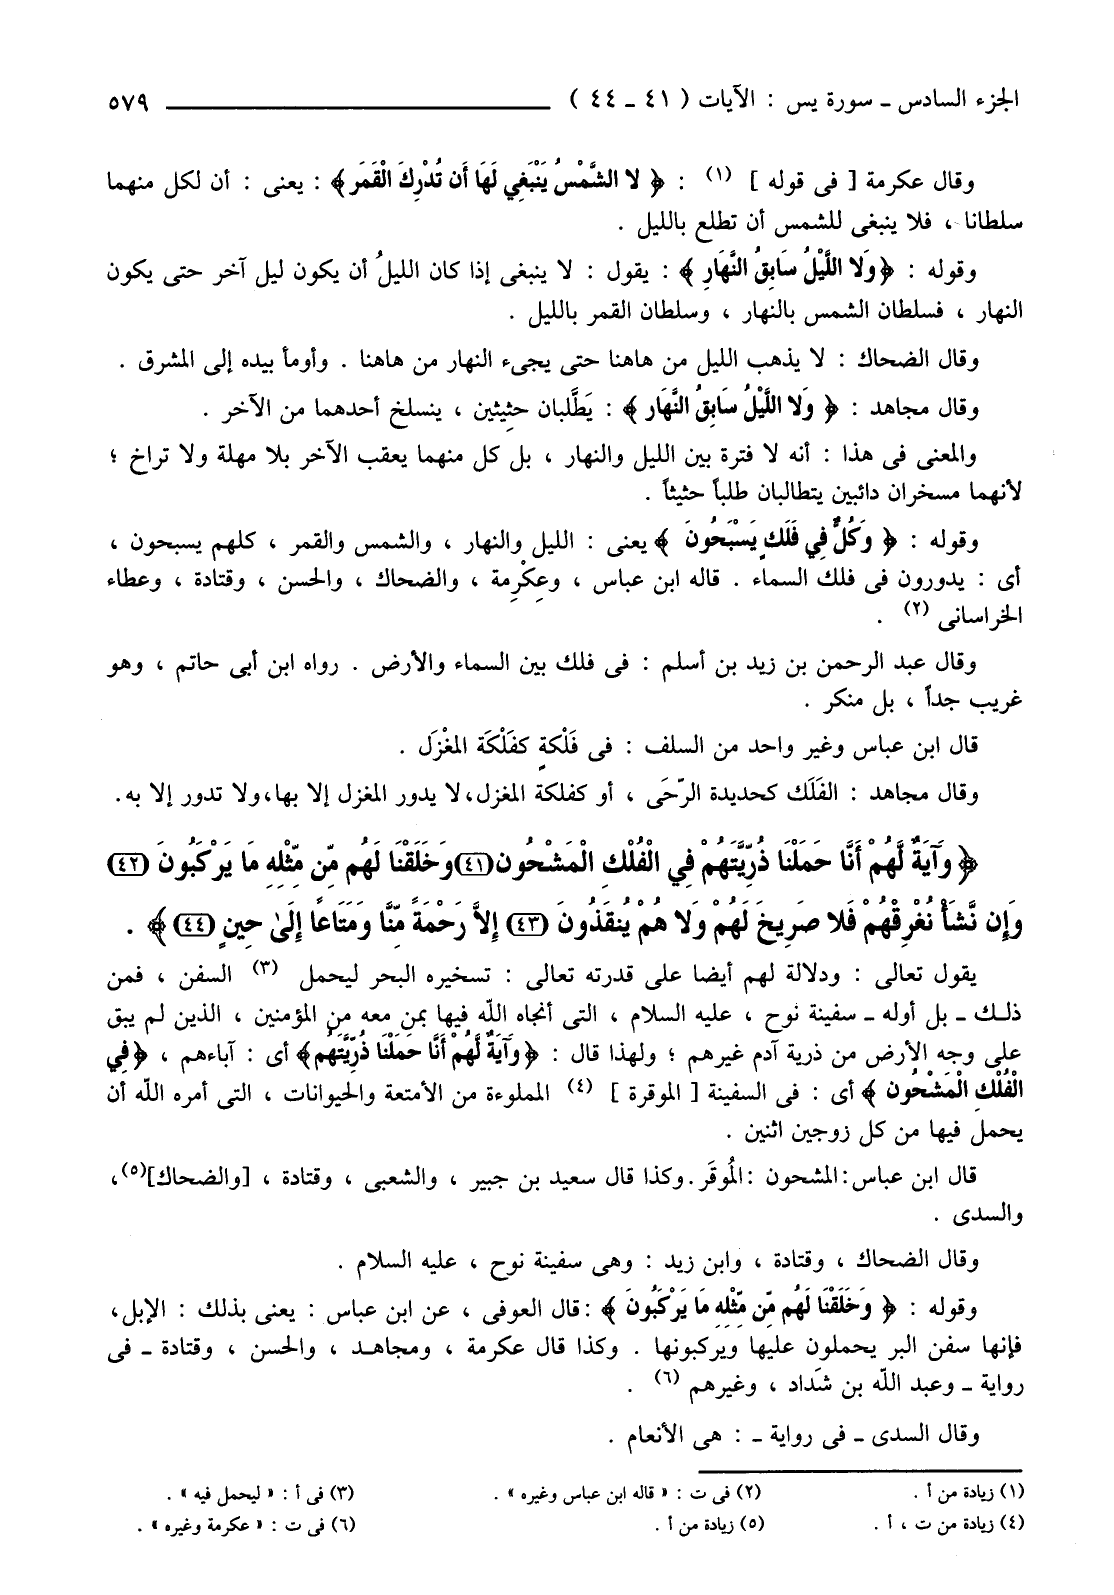 الجزء السادس ـ سورة يس : الآيات ( ٤١ ـ ٤٤ ) ٥٧٩
وقال عكرمة [ فى قوله ] (١) : ﴿ لا الشَّمْسُ يَنْبَغِي لَهَا أَن تُدْرِكَ الْقَمَر ﴾ : يعنى : أن لكل منهما
سلطانا ، فلا ينبغى للشمس أن تطلع بالليل .
وقوله : ﴿ وَلا اللَّيْلُ سَابِقُ النَّهَارِ ﴾ : يقول : لا ينبغى إذا كان الليلُ أن يكون ليل آخر حتى يكون
النهار ، فسلطان الشمس بالنهار ، وسلطان القمر بالليل .
وقال الضحاك : لا يذهب الليل من هاهنا حتى يجىء النهار من هاهنا . وأومأ بيده إلى المشرق .
وقال مجاهد : ﴿ وَلا اللَّيْلُ سَابِقُ النَّهَار ﴾ : يَطَّلبان حثِيثين ، ينسلخ أحدهما من الآخر .
والمعنى فى هذا : أنه لا فترة بين الليل والنهار ، بل كل منهما يعقب الآخر بلا مهلة ولا تراخ ؛
لأنهما مسخران دائبين يتطالبان طلباً حثيثاً .
وقوله : ﴿ وَكُلٌّ فِي فَلَكٍ يَسْبَحُونَ ﴾ يعنى : الليل والنهار ، والشمس والقمر ، كلهم يسبحون ،
أى : يدورون فى فلك السماء . قاله ابن عباس ، وعِكْرِمة ، والضحاك ، والحسن ، وقتادة ، وعطاء
الخراسانى (٢) .
وقال عبد الرحمن بن زيد بن أسلم : فى فلك بين السماء والأرض . رواه ابن أبى حاتم ، وهو
غريب جداً ، بل منكر .
قال ابن عباس وغير واحد من السلف : فى فَلْكةٍ كفَلْكَة المغْزَل .
وقال مجاهد : الفَلَك كحديدة الرّحَى ، أو كفلكة المغزل،لا يدور المغزل إلا بها،ولا تدور إلا به.
﴿ وَآيَةٌ لَّهُمْ أَنَّا حَمَلْنَا ذُرِّيَّتَهُمْ فِي الْفُلْكِ الْمَشْحُونِ (٤١) وَخَلَقْنَا لَهُم مِّن مِّثْلِهِ مَا يَرْكَبُونَ (٤٢)
وَإِن نَّشَأْ نُغْرِقْهُمْ فَلا صَرِيخَ لَهُمْ وَلا هُمْ يُنقَذُونَ (٤٣) إِلاَّ رَحْمَةً مِّنَّا وَمَتَاعًا إِلَىٰ حِينٍ (٤٤) ﴾ .
يقول تعالى : ودلالة لهم أيضا على قدرته تعالى : تسخيره البحر ليحمل (٣) السفن ، فمن
ذلـك ـ بل أوله ـ سفينة نوح ، عليه السلام ، التى أنجاه اللّه فيها بمن معه من المؤمنين ، الذين لم يبق
على وجه الأرض من ذرية آدم غيرهم ؛ ولهذا قال : ﴿ وَآيَةٌ لَّهُمْ أَنَّا حَمَلْنَا ذُرِّيَّتَهُم ﴾ أى : آباءهم ، ﴿ فِي
الْفُلْكِ الْمَشْحُونِ ﴾ أى : فى السفينة [ الموقرة ] (٤) المملوءة من الأمتعة والحيوانات ، التى أمره اللّه أن
يحمل فيها من كل زوجين اثنين .
قال ابن عباس:المشحون :المُوقَر.وكذا قال سعيد بن جبير ، والشعبى ، وقتادة ، [والضحاك](٥)،
والسدى .
وقال الضحاك ، وقتادة ، وابن زيد : وهى سفينة نوح ، عليه السلام .
وقوله : ﴿ وَخَلَقْنَا لَهُم مِّن مِّثْلِهِ مَا يَرْكَبُونَ ﴾ :قال العوفى ، عن ابن عباس : يعنى بذلك : الإبل،
فإنها سفن البر يحملون عليها ويركبونها . وكذا قال عكرمة ، ومجاهـد ، والحسن ، وقتادة ـ فى
رواية ـ وعبد اللّه بن شَداد ، وغيرهم (٦) .
وقال السدى ـ فى رواية ـ : هى الأنعام .
(١) زيادة من أ . (٢) فى ت : « قاله ابن عباس وغيره » . (٣) فى أ : « ليحمل فيه » .
(٤) زيادة من ت ، أ . (٥) زيادة من أ . (٦) فى ت : « عكرمة وغيره » .